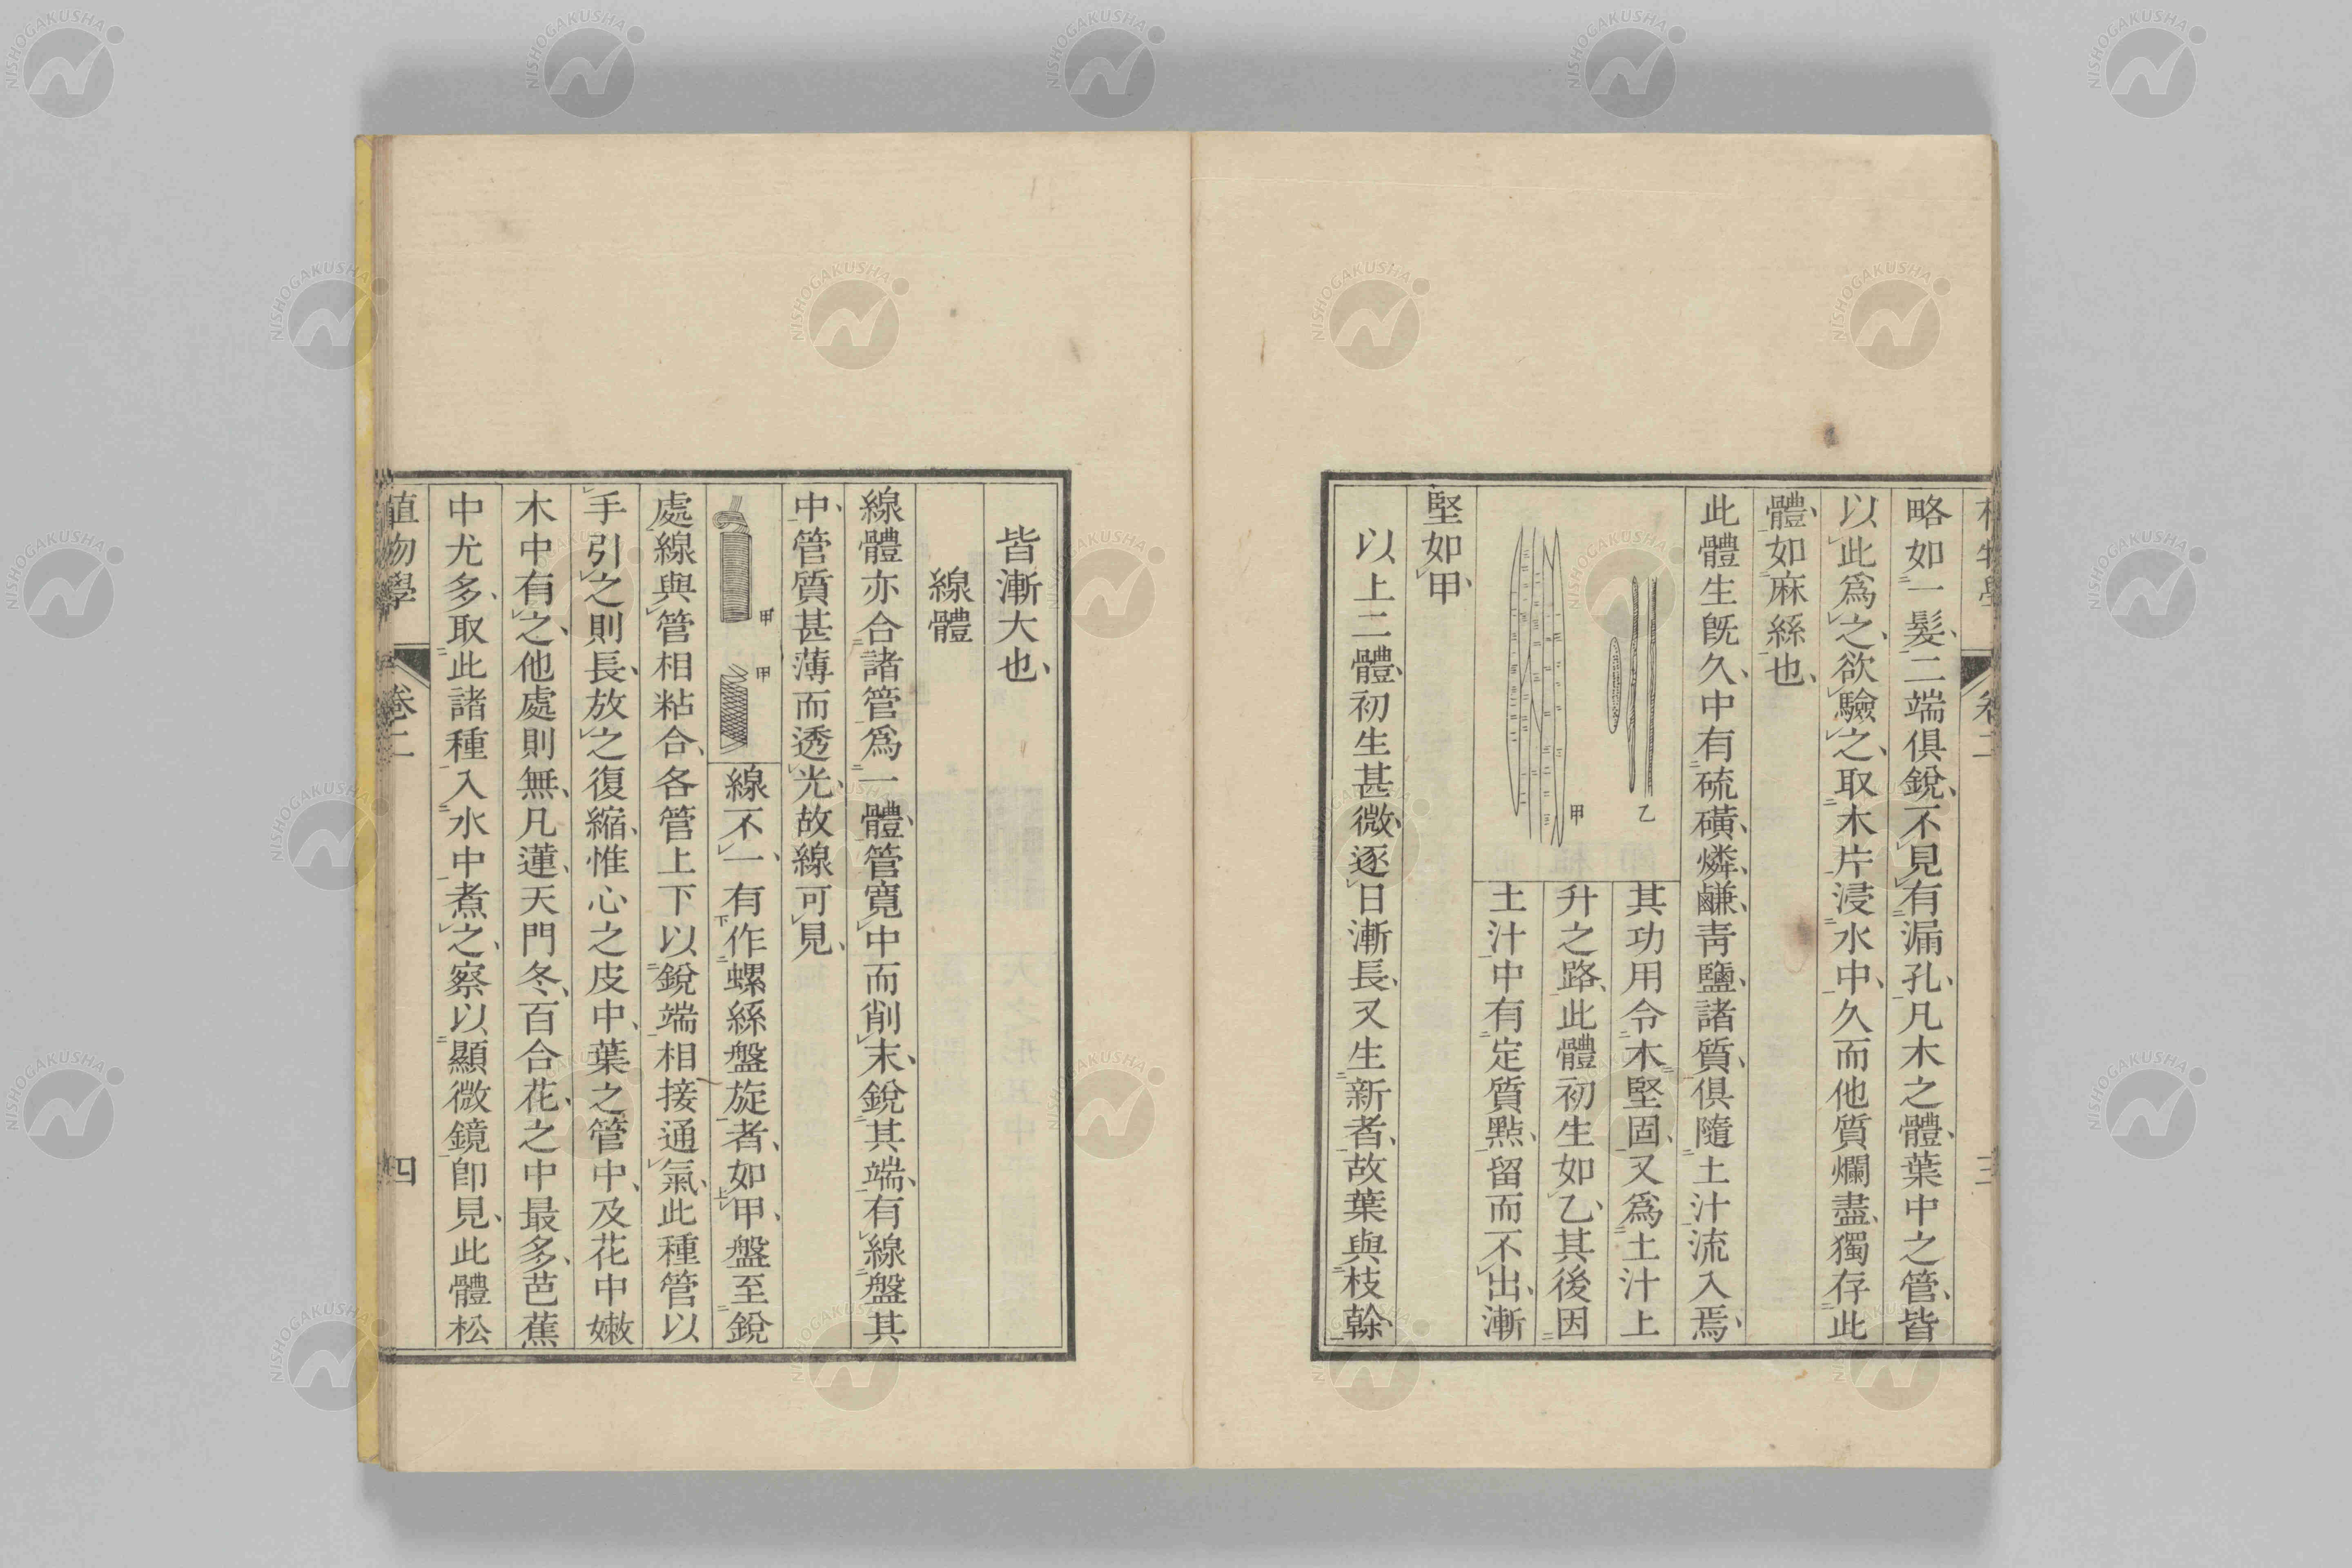 植物學 卷二 三
略如一髮、二端俱銳、不見有漏孔、凡木之體、葉中之管、皆
以此爲之、欲驗之、取木片浸水中、久而他質爛盡、獨存此
體、如麻絲也、
此體生旣久、中有硫磺、燐、鹻、靑鹽、諸質、俱隨土汁流入焉、
乙
甲
其功用令木堅固、又爲土汁上
升之路、此體初生如乙、其後因
土汁中有定質點、留而不出、漸
堅如甲、
以上二體、初生甚微、逐日漸長、又生新者、故葉與枝榦、
皆漸大也、
線體
線體亦合諸管爲一體、管寬中而削末、銳其端、有線盤其
中、管質甚薄而透光、故線可見、
甲
甲
線不一、有作螺絲盤旋者、如甲、盤至銳
處、線與管相粘合、各管上下以銳端相接通氣、此種管以
手引之則長、放之復縮、惟心之皮中、葉之管中、及花中嫩
木中有之、他處則無、凡蓮、天門冬、百合花、之中最多、芭蕉
中尤多、取此諸種入水中煮之、察以顯微鏡卽見、此體松
植物學 卷二 四
NISHOGAKUSHA